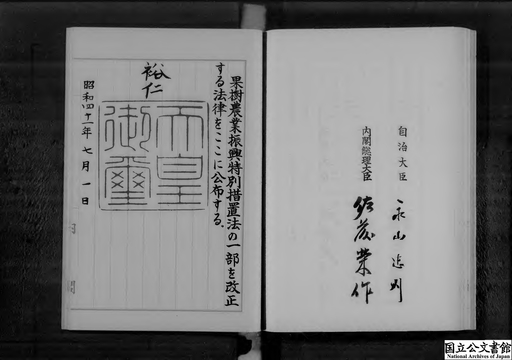 自治大臣 永山忠則
内閣総理大臣 佐藤榮作
果樹農業振興特別措置法の一部を改正
する法律をここに公布する。
裕仁
天皇
御璽
昭和四十一年七月一日
国立公文書館
National Archives of Japan